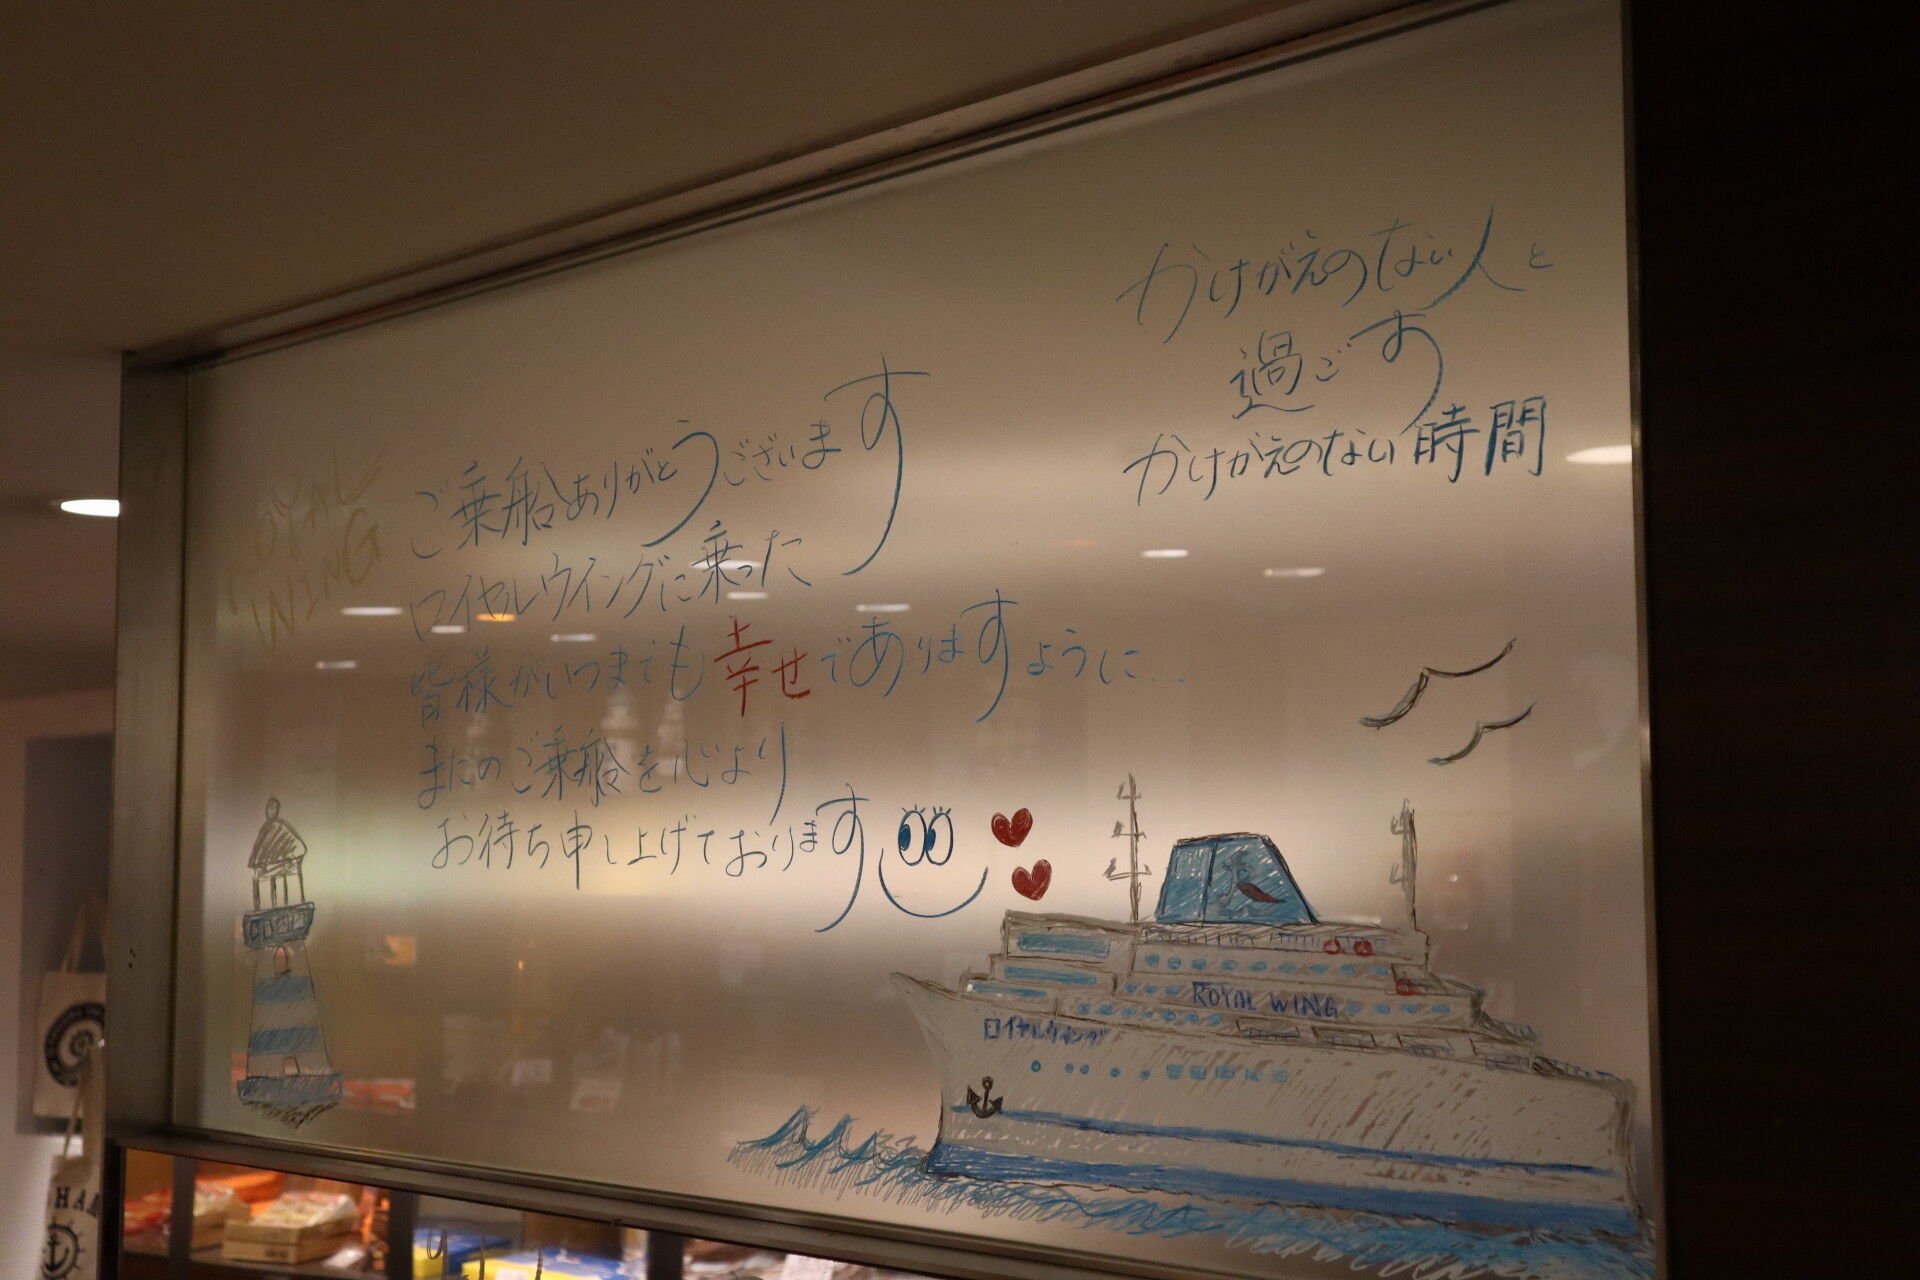 かけがえのない人と
過ごす
かけがえのない時間
ROYAL
WING
ご乗船ありがとうございます
ロイヤルウイングに乗った
皆様がいつまでも幸せでありますように...
またのご乗船を心より
お待ち申し上げております
ROYAL WING
ロイヤルウイング